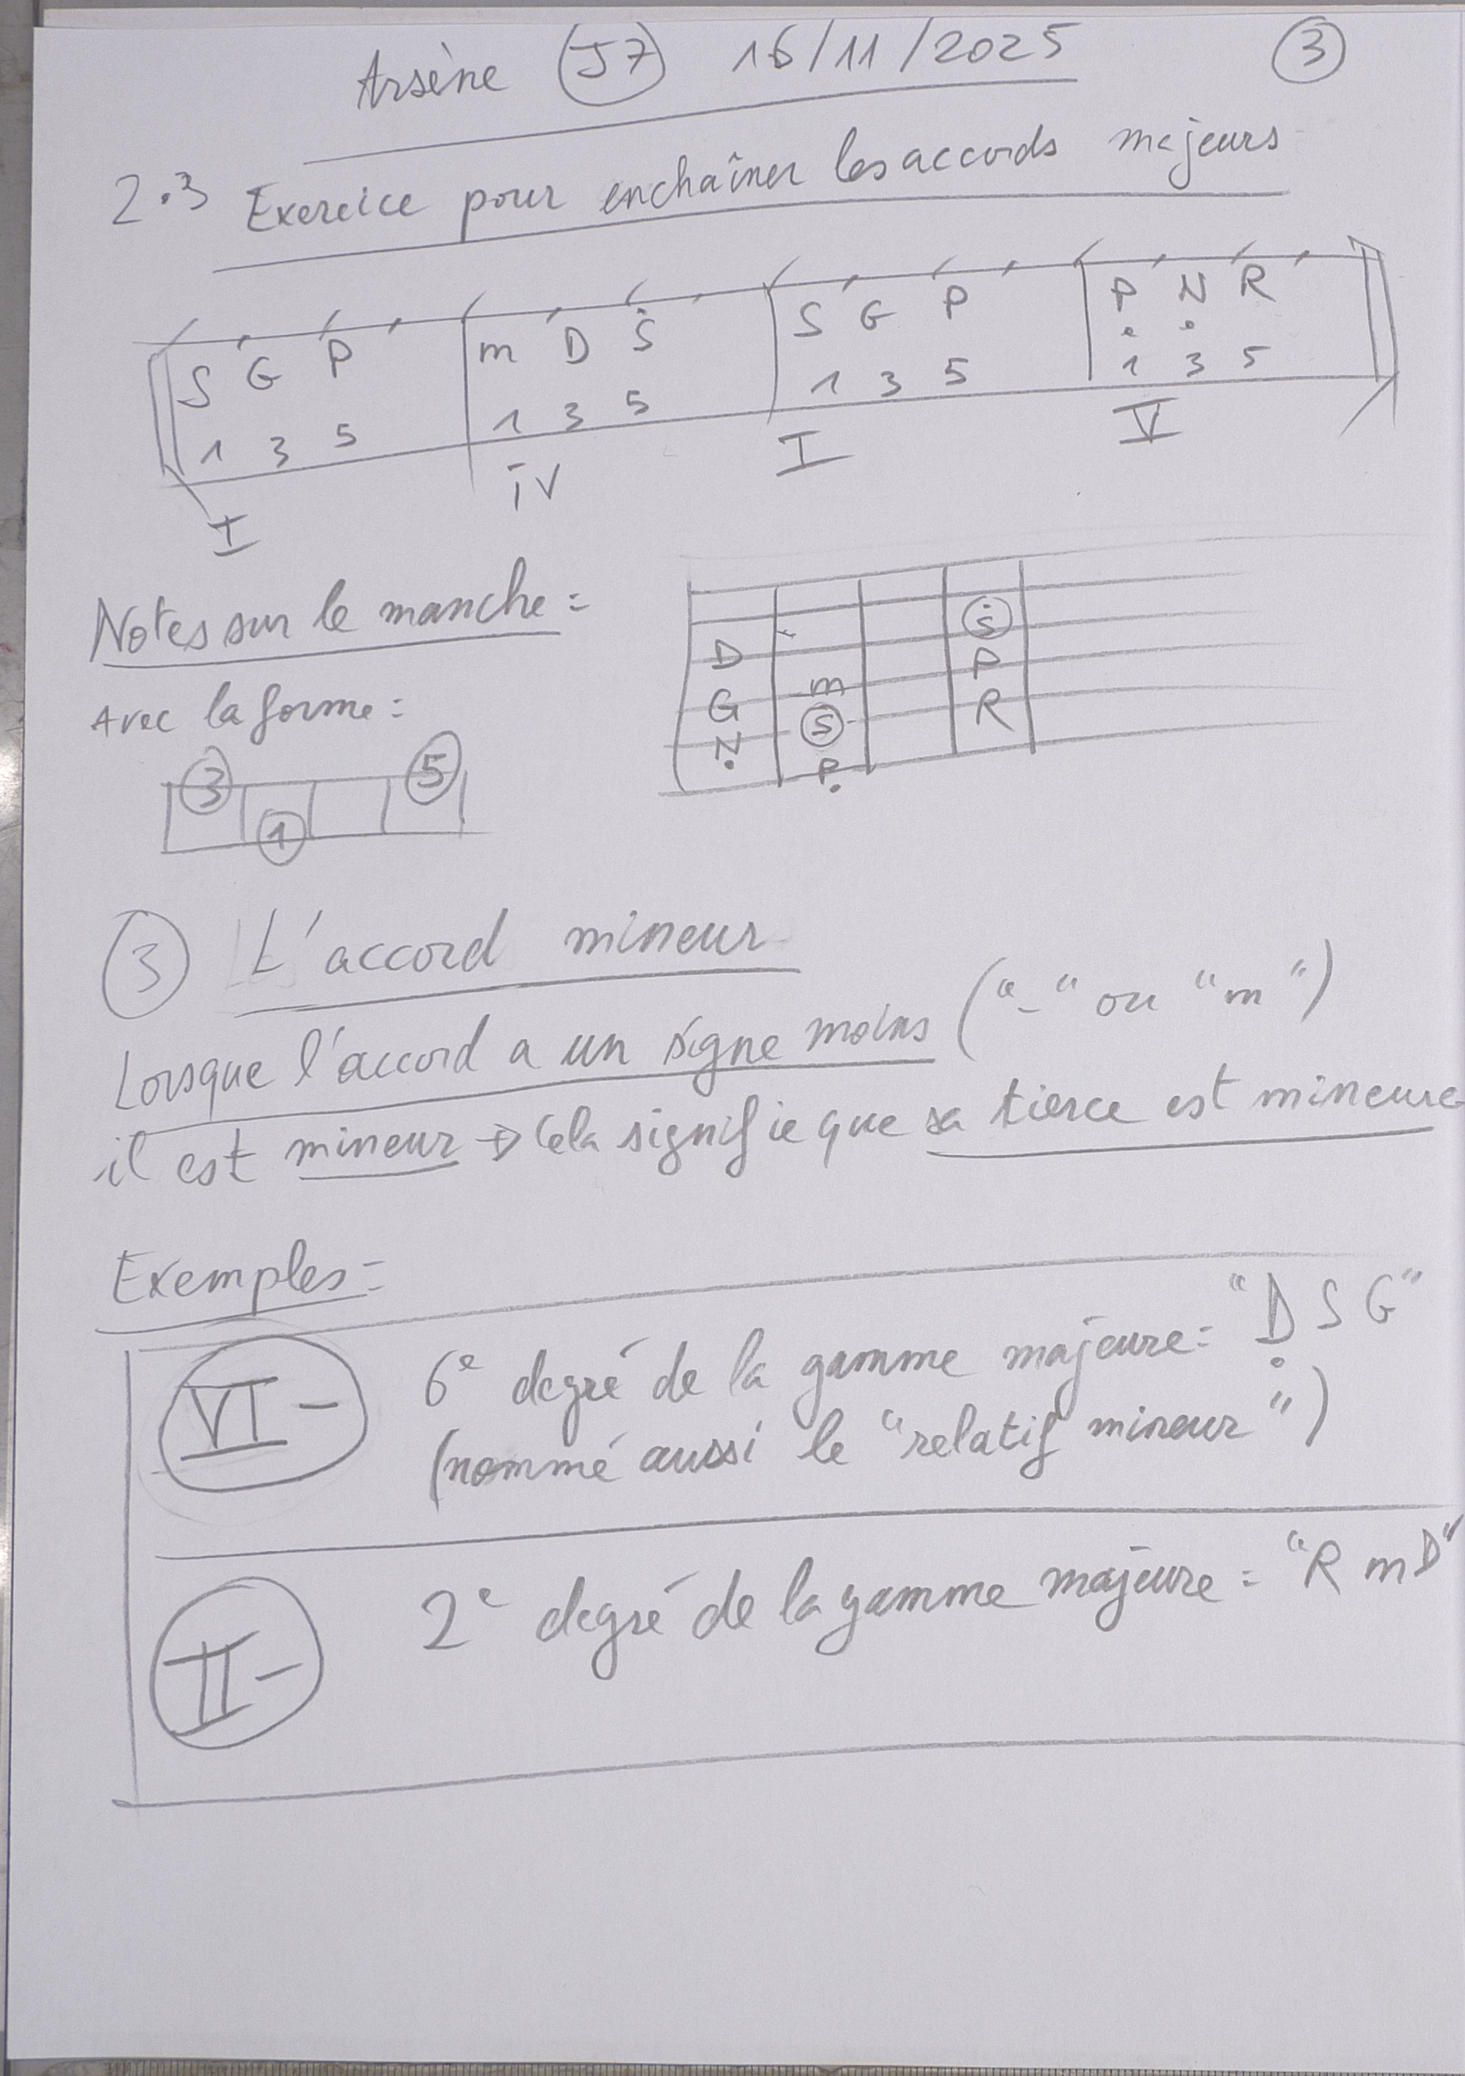 Arsène J7 16/11/2025 3
2.3 Exercice pour enchaîner les accords majeurs
S G P m D Ṡ S G P Ṗ Ṇ R
1 3 5 1 3 5 1 3 5 1 3 5
I IV I V
Notes sur le manche :
Avec la forme :
3 5
1
Ṡ
D P
m
G R
S
Ṇ
P̣
3 L'accord mineur
Lorsque l'accord a un signe moins ("-" ou "m")
il est mineur → Cela signifie que sa tierce est mineure
Exemples :
VI - 6e degré de la gamme majeure : "Ḍ S G"
(nommé aussi le "relatif mineur")
II - 2e degré de la gamme majeure : "R m D"